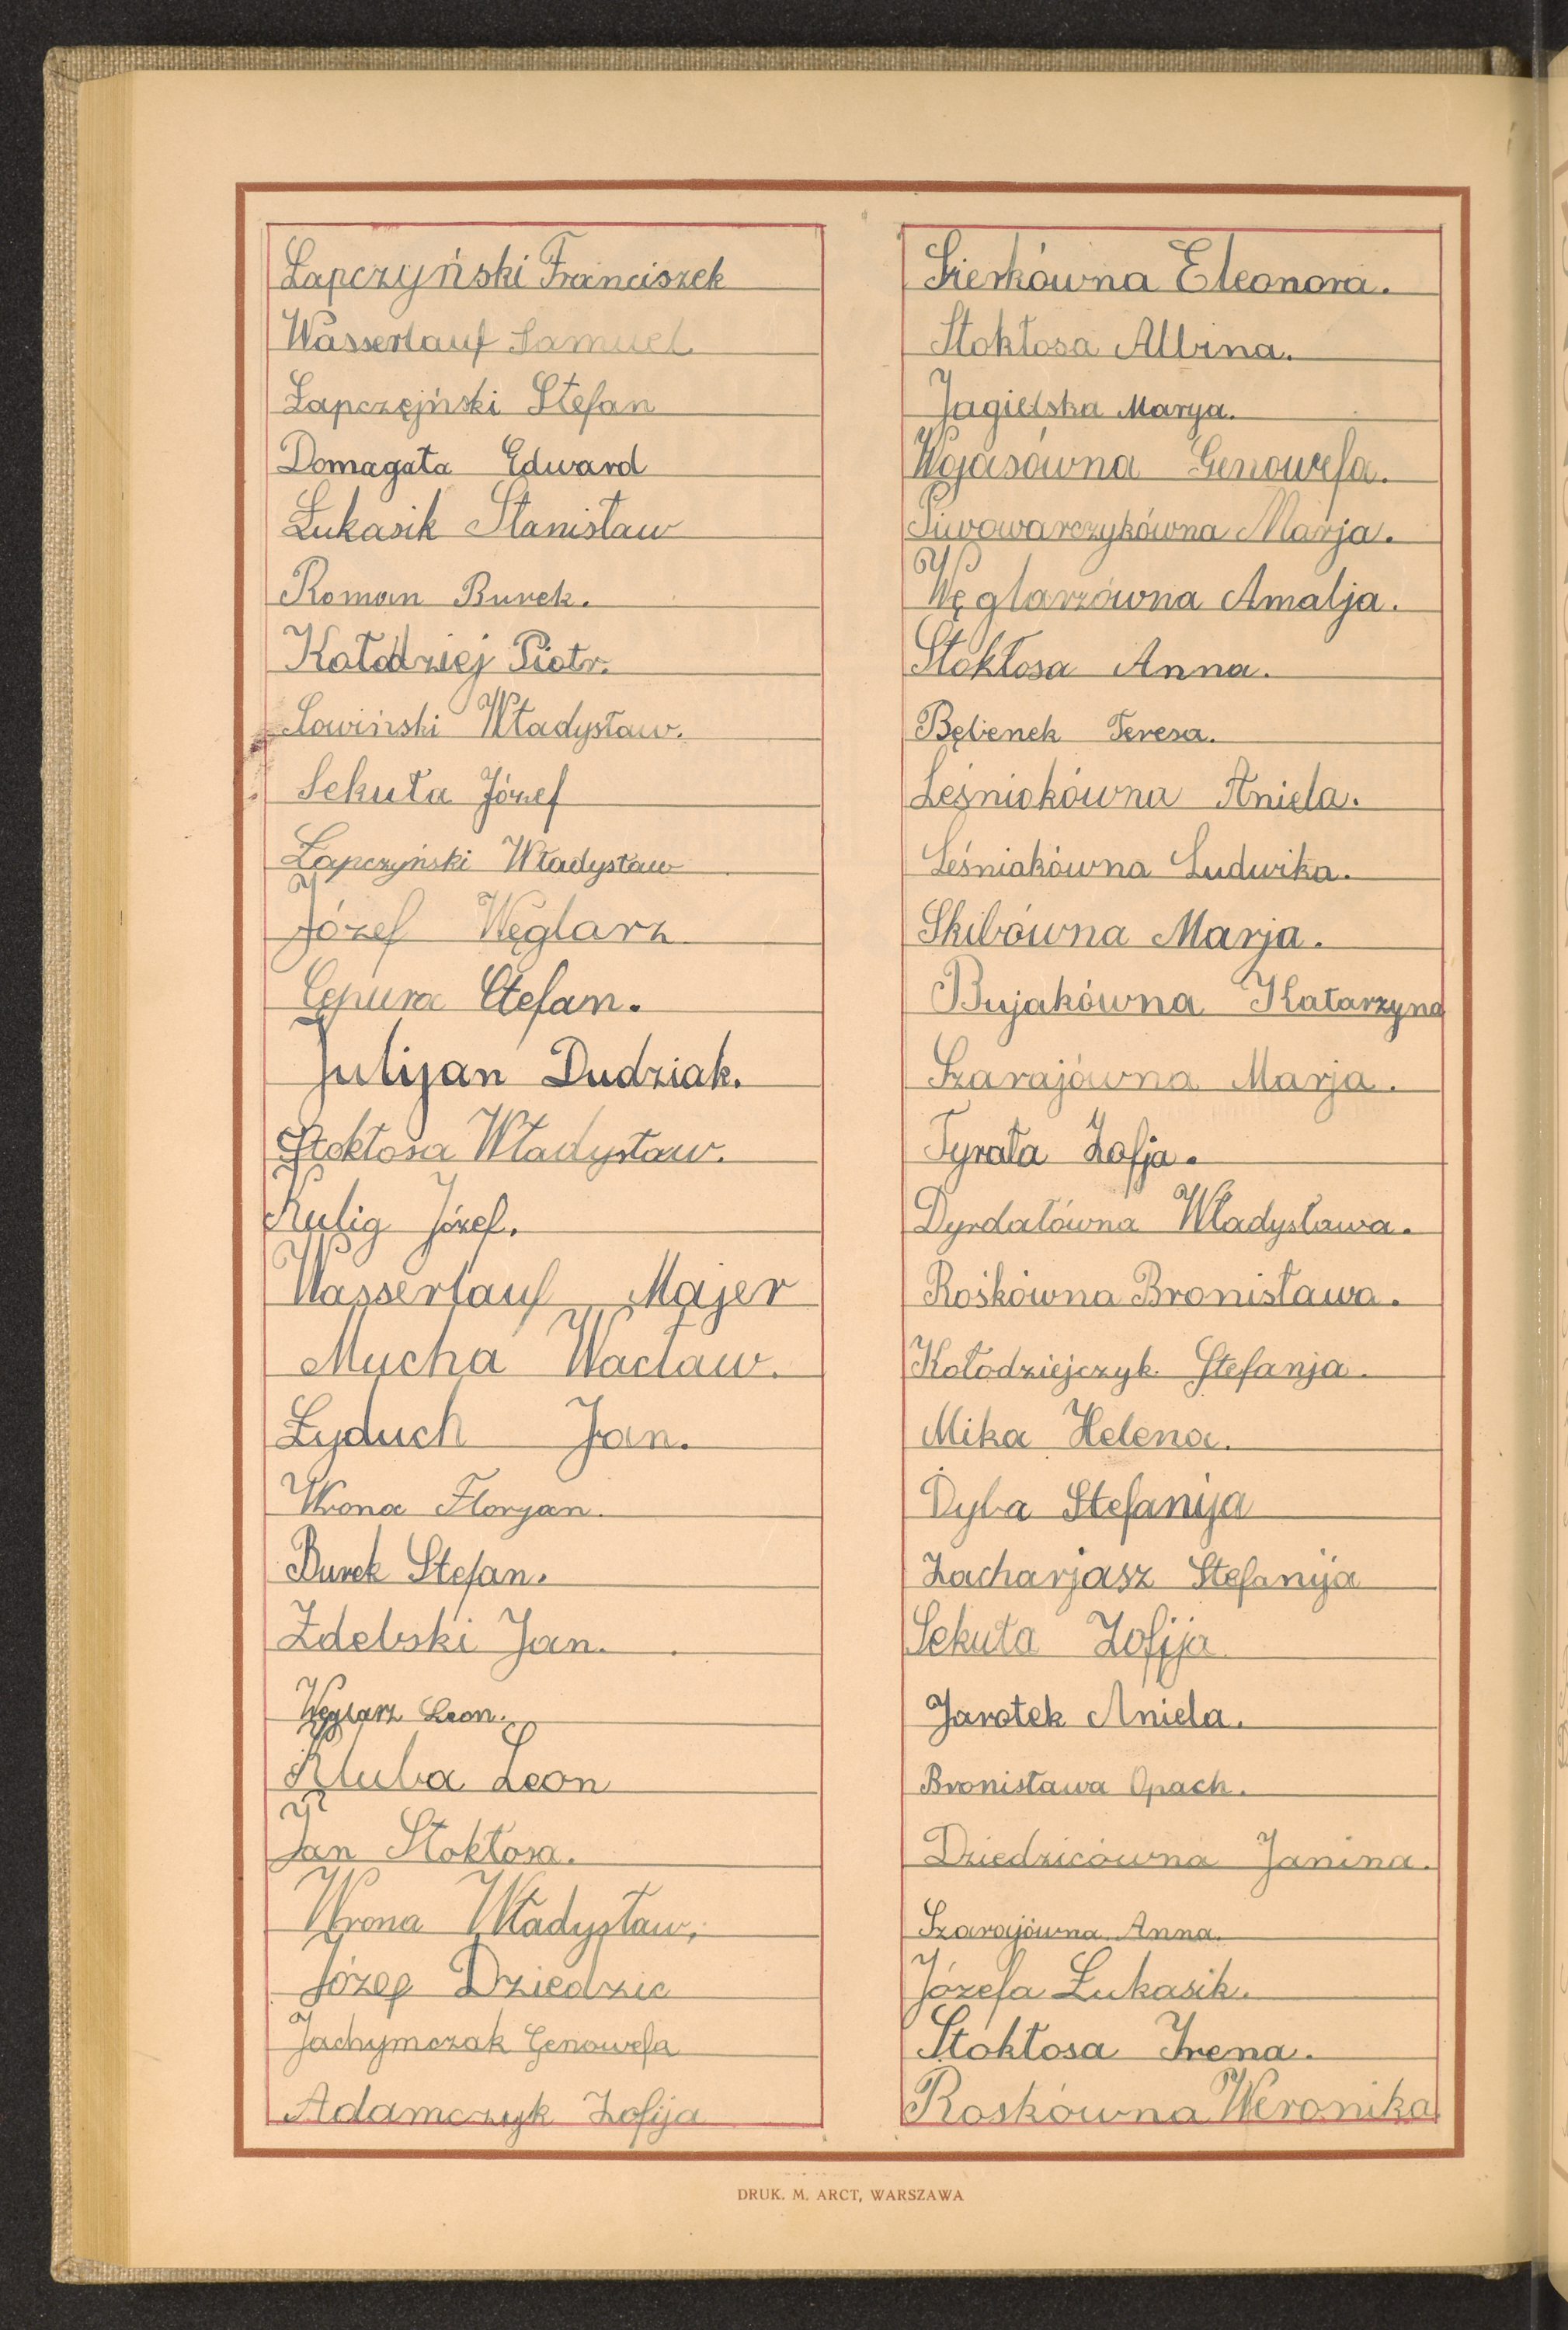 Łapczyński Franciszek
Wasserlauf Samuel
Łapczejński Stefan
Domagała Edward
Łukasik Stanisław
Roman Burek.
Kołodziej Piotr.
Sowiński Władysław.
Sekuła Józef
Łapczyński Władysław
Józef Węglarz
Cępura Stefan.
Julijan Dudziak.
Stokłosa Władysław.
Kulig Józef.
Wasserlauf Majer
Mucha Wacław.
Łyduch Jan.
Wrona Florjan.
Burek Stefan.
Zdebski Jan.
Węglarz Leon.
Kluba Leon
Jan Stokłosa.
Wrona Władysław.
Józef Dziedzic
Jachymczak Genowefa
Adamczyk Zofija
Sierkówna Eleonora.
Stokłosa Albina.
Jagielska Marya.
Wojasówna Genowefa.
Piwowarczykówna Marja.
Węglarzówna Amalja.
Stokłosa Anna.
Bębenek Teresa.
Leśniakówna Aniela.
Leśniakówna Ludwika.
Skibówna Marja.
Bujakówna Katarzyna
Szarajówna Marja.
Tyrała Zofja.
Dyrdałówna Władysława.
Rośkówna Bronisława.
Kołodziejczyk Stefanja.
Mika Helena.
Dyba Stefanija
Zacharjasz Stefanija
Sekuła Zofija
Jarotek Aniela.
Bronisława Opach.
Dziedzicówna Janina.
Szarajówna Anna.
Józefa Łukasik.
Stokłosa Irena.
Roskówna Weronika
DRUK. M. ARCT, WARSZAWA